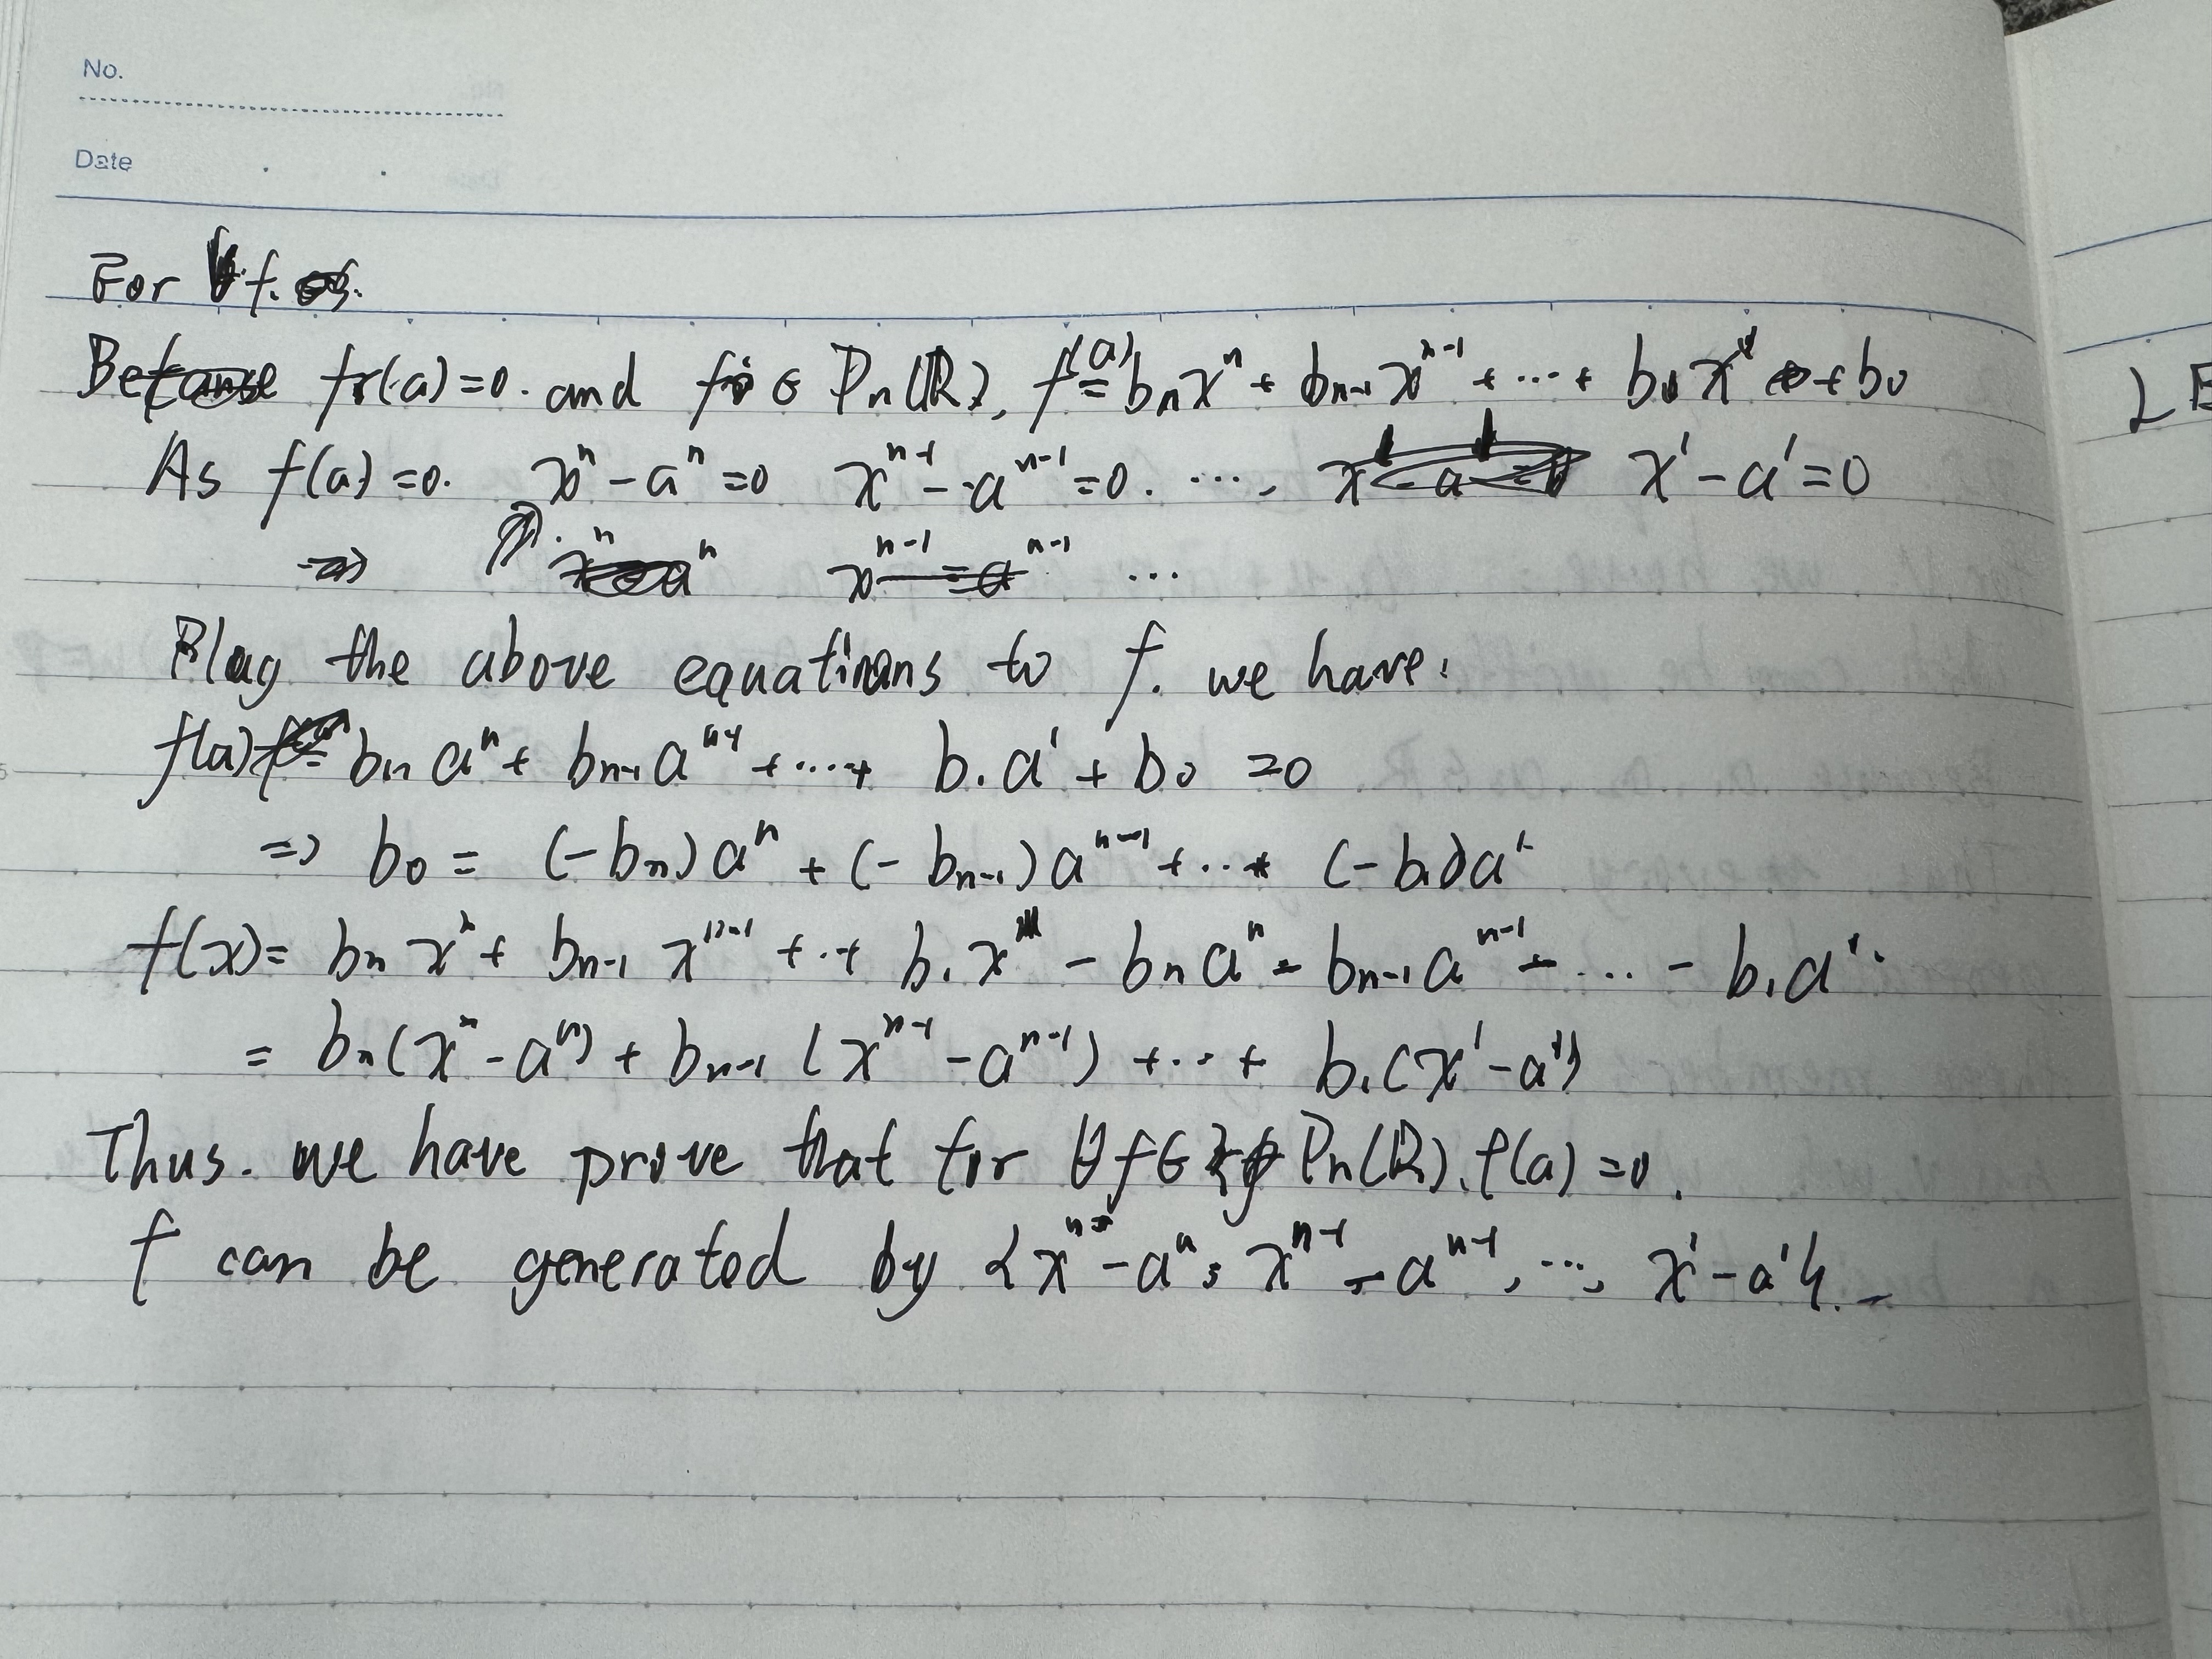 No.
Date
For ∀f.
Because f(a)=0. and f ∈ Pn(R), f(a) = bnxⁿ + bn-1xⁿ⁻¹ + ⋯ + b1x¹ + b0
As f(a)=0. xⁿ-aⁿ=0 xⁿ⁻¹-aⁿ⁻¹=0. ⋯, x¹-a¹=0
⇒ xⁿ=aⁿ xⁿ⁻¹=aⁿ⁻¹ ⋯
Plug the above equations to f. we have:
f(a) = bnaⁿ + bn-1aⁿ⁻¹ + ⋯ + b1a¹ + b0 =0
⇒ b0 = (-bn)aⁿ + (-bn-1)aⁿ⁻¹ + ⋯ + (-b1)a¹
f(x) = bnxⁿ + bn-1xⁿ⁻¹ + ⋯ + b1x - bnaⁿ - bn-1aⁿ⁻¹ - ⋯ - b1a¹.
= bn(xⁿ-aⁿ) + bn-1(xⁿ⁻¹-aⁿ⁻¹) + ⋯ + b1(x¹-a¹)
Thus. we have prove that for ∀f∈ Pn(R), f(a)=0.
f can be generated by {xⁿ-aⁿ, xⁿ⁻¹-aⁿ⁻¹, ⋯, x¹-a¹}.